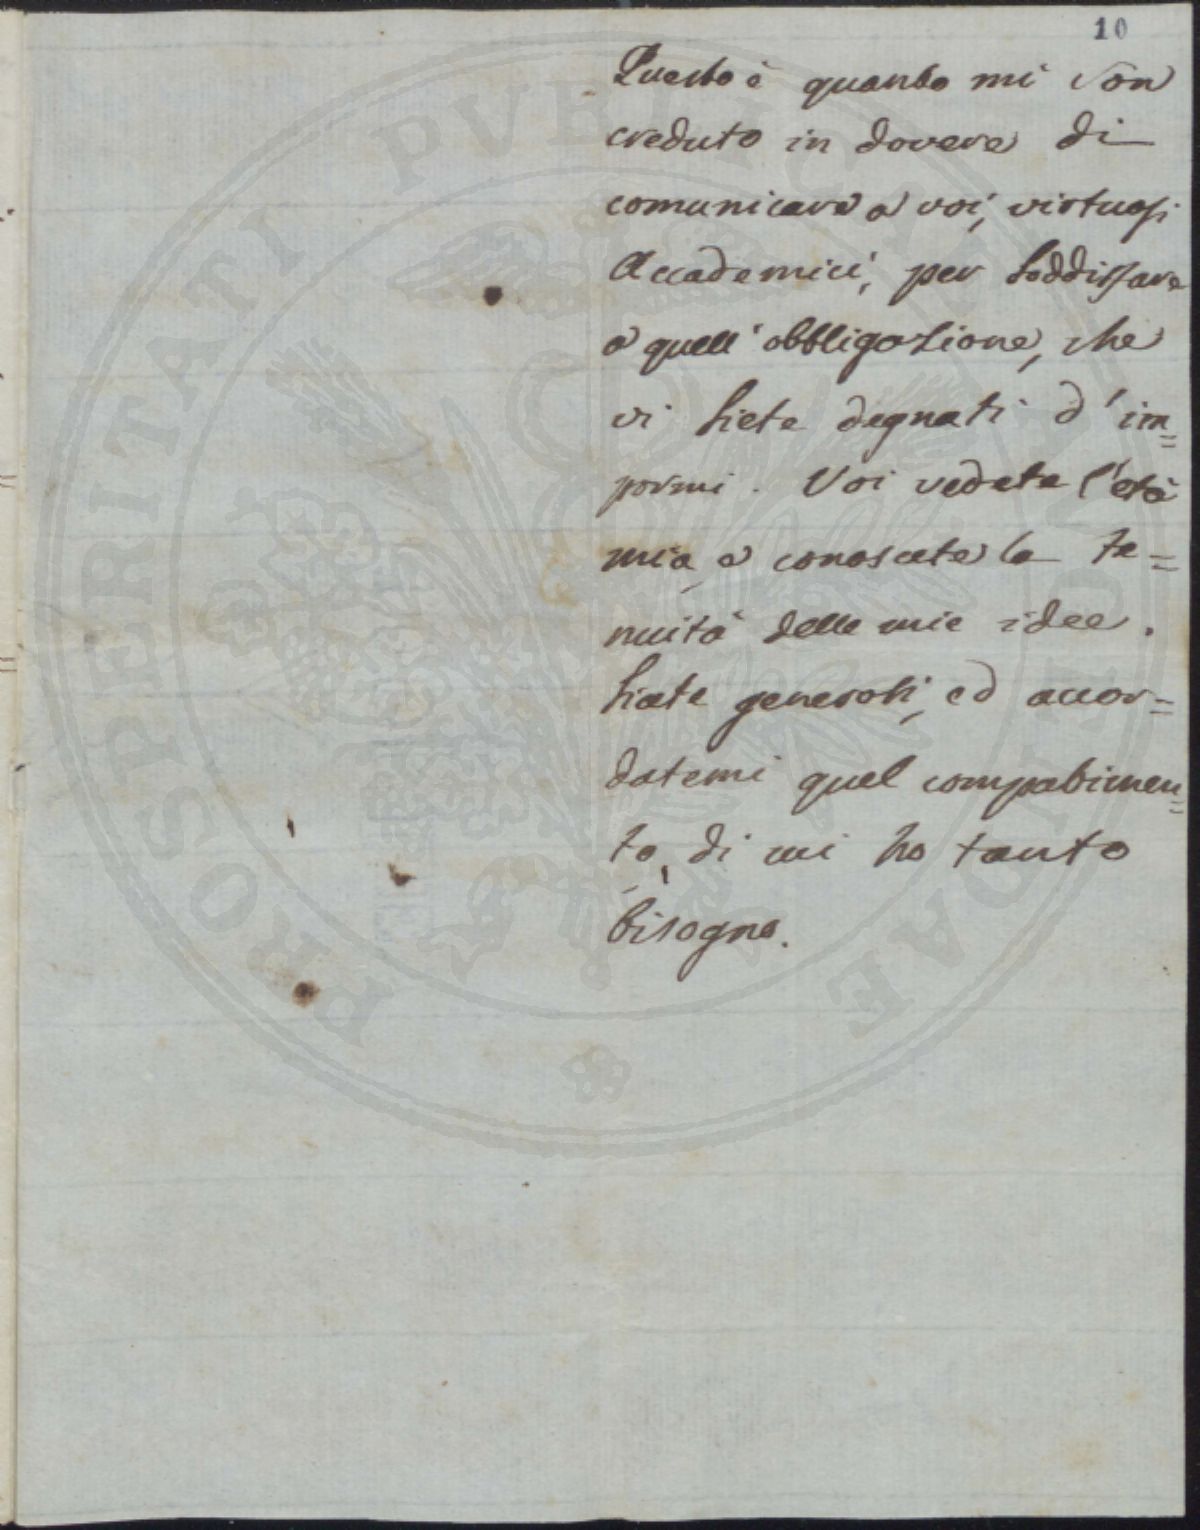 10
Questo è quanto mi son
creduto in dovere di
comunicare a voi, virtuosi
Accademici, per soddisfare
a quell'obbligazione, che
vi siete degnati d'im=
pormi. Voi vedete l'età
mia, e conoscete la te=
nuità delle mie idee.
Siate generosi, ed accor=
datemi quel compatimen=
to, di cui ho tanto
bisogno.
PROSPERITATI PUBLICAE